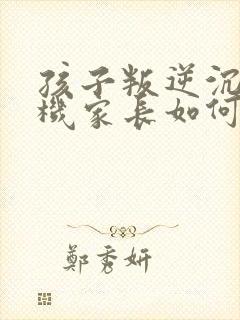 孩子叛逆沉
機家長如何
鄭秀妍